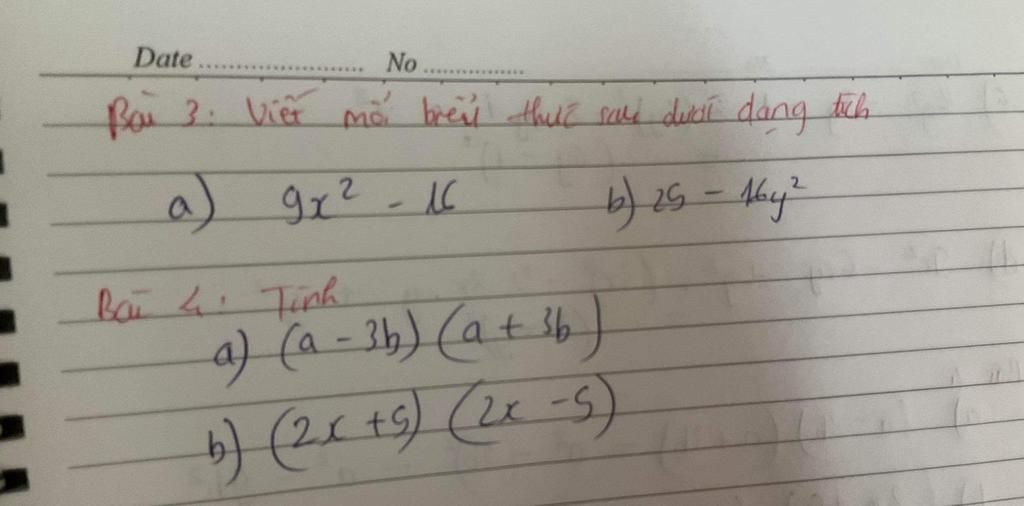 Date ........................ No ...............
Bài 3: Viết mỗi biểu thức sau dưới dạng tích
a) 9x² - 16 b) 25 - 16y²
Bài 4: Tính
a) (a - 3b) (a + 3b)
b) (2x + 5) (2x - 5)